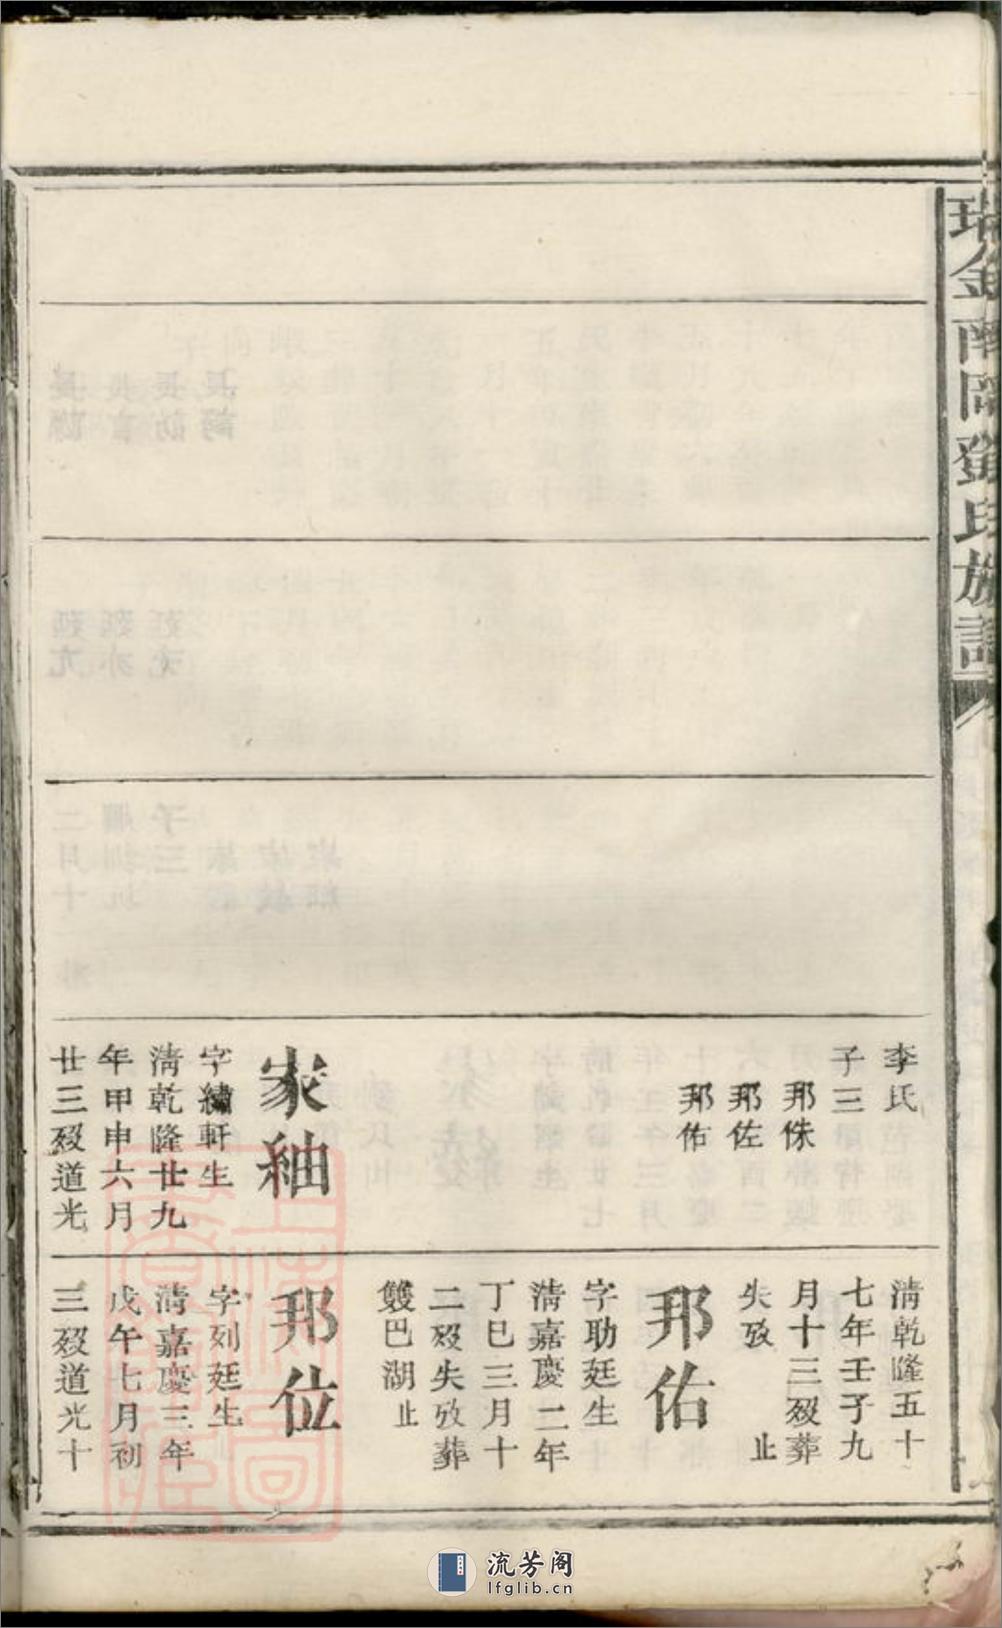 瑞金南岡劉氏族譜
李氏
子三
邦侏
邦佐
邦佑
家紬
字繡軒生
淸乾隆廿九
年甲申六月
廿三歿道光
淸乾隆五十
七年壬子九
月十三歿葬
失攷 止
邦佑
字助廷生
淸嘉慶二年
丁巳三月十
二歿失攷葬
雙巴湖止
邦位
字列廷生
淸嘉慶三年
戊午七月初
三歿道光十
流芳阁
lfglib.cn